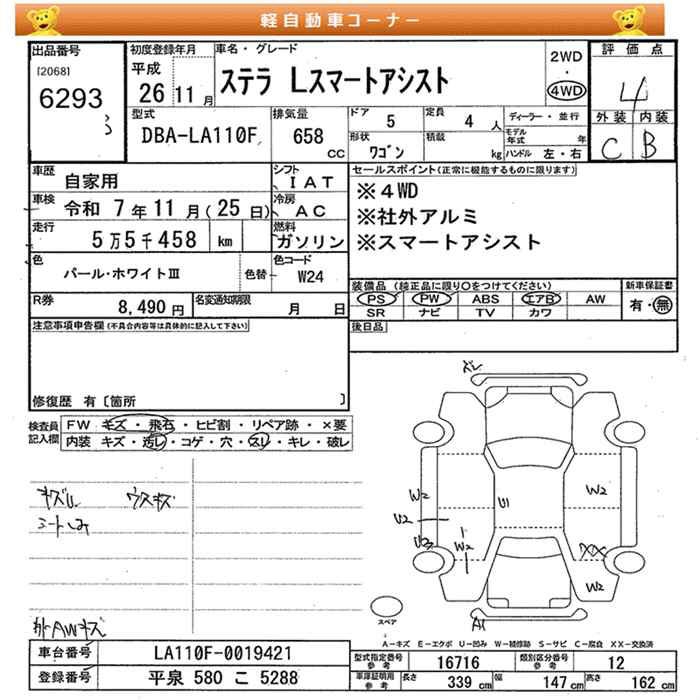 軽自動車コーナー
出品番号
[2068]
6293
3
初度登録年月
平成
26年 11月
車名・グレード
ステラ Lスマートアシスト
2WD
・
4WD
評価点
4
外装 内装
C B
型式
DBA-LA110F
排気量
658
CC
ドア 5
定員 4人
形状 ワゴン
積載 kg
ディーラー・並行
モデル年式 年
ハンドル 左・右
車歴
自家用
シフト
IAT
車検
令和 7年11月(25日)
冷房
AC
走行
5万5千458 km
燃料
ガソリン
色
パール・ホワイトⅢ
色替
色コード
W24
R券
8,490円
名変通知期限
月 日
セールスポイント(正常に機能するものに限ります)
※4WD
※社外アルミ
※スマートアシスト
装備品 (純正品に限り○をつけてください)
PS PW ABS エアB AW
SR ナビ TV カワ
新車保証書
有・無
後日品
注意事項申告欄(不具合内容等は具体的に記入して下さい)
修復歴 有〔箇所 〕
検査員記入欄
FW キズ・飛石・ヒビ割・リペア跡・×要
内装 キズ・汚レ・コゲ・穴・スレ・キレ・破レ
キズU ウスキズ
シートしみ
外AWキズ
ズレ
W2
U2
U3
W2
U1
W2
XX
W2
A1
スペア
A-キズ E-エクボ U-凹み W-補修跡 S-サビ C-腐食 XX-交換済
車台番号
LA110F-0019421
登録番号
平泉 580 こ 5288
型式指定番号参考
16716
類別区分番号参考
12
車庫証明用参考
長さ 339cm
幅 147cm
高さ 162cm